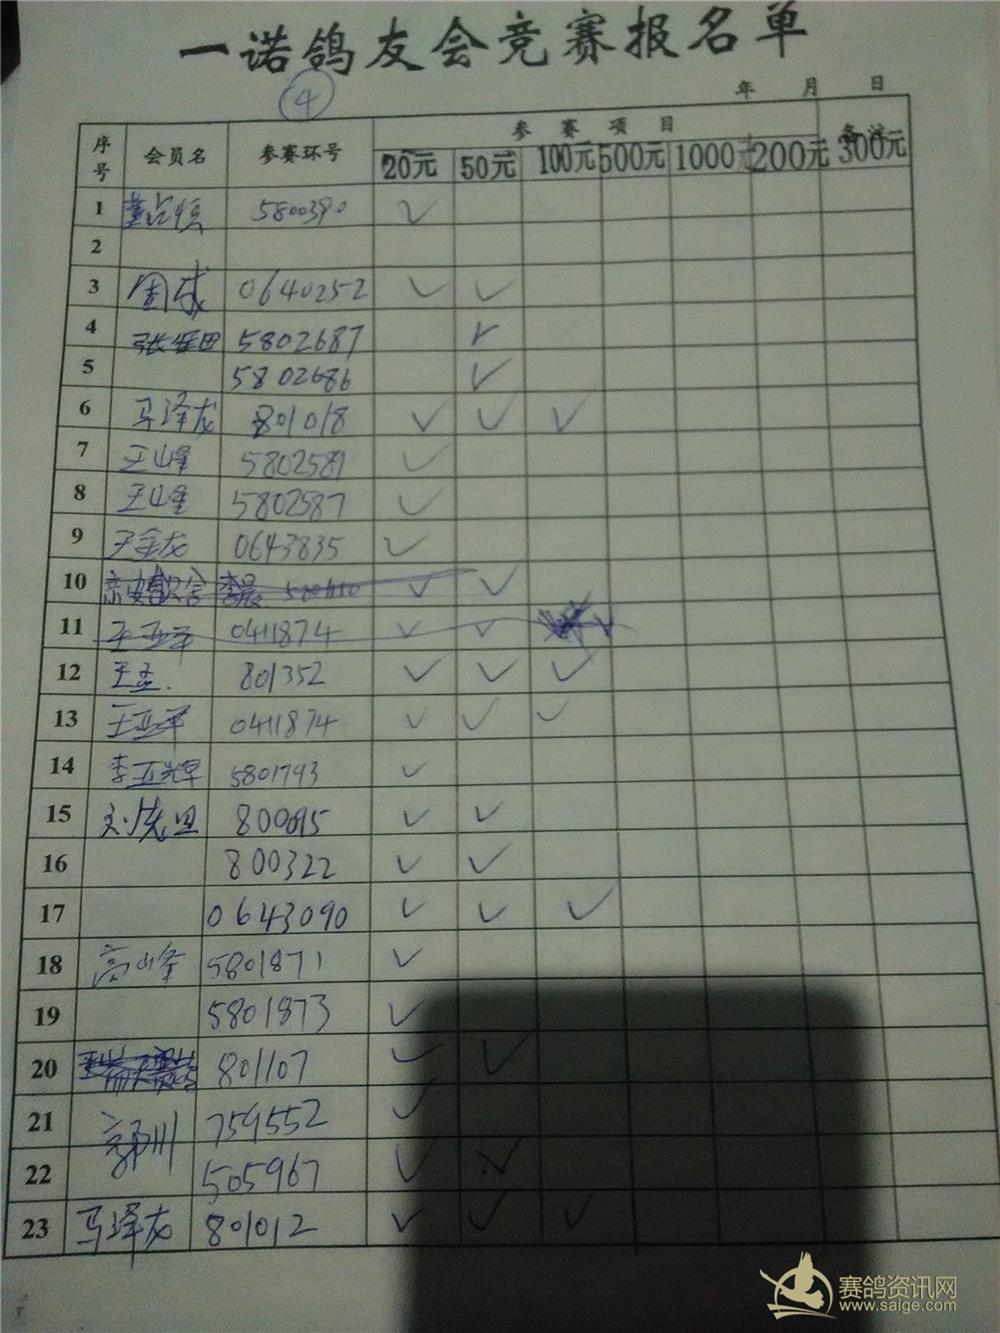 一诺鸽友会竞赛报名单
4
年 月 日
序号 会员名 参赛环号 参赛项目 备注
20元 50元 100元 500元 1000元 200元 300元
1 5800390 ✓
2
3 周成 0640252 ✓ ✓
4 张继田 5802687 ✓
5 5802686 ✓
6 马泽龙 801018 ✓ ✓ ✓
7 王山峰 5802589 ✓
8 王山峰 5802587 ✓
9 王金龙 0643835 ✓
10 ✓ ✓
11 王亚平 0411874 ✓ ✓ ✓
12 王孟 801352 ✓ ✓ ✓
13 王亚平 0411874 ✓ ✓ ✓
14 李亚辉 5801793 ✓
15 800015 ✓ ✓
16 800322 ✓ ✓
17 0643090 ✓ ✓ ✓
18 高山峰 5801871 ✓
19 5801873 ✓
20 801107 ✓ ✓
21 759552 ✓
22 505967 ✓ ✓
23 马泽龙 801012 ✓ ✓ ✓
赛鸽资讯网
www.saige.com